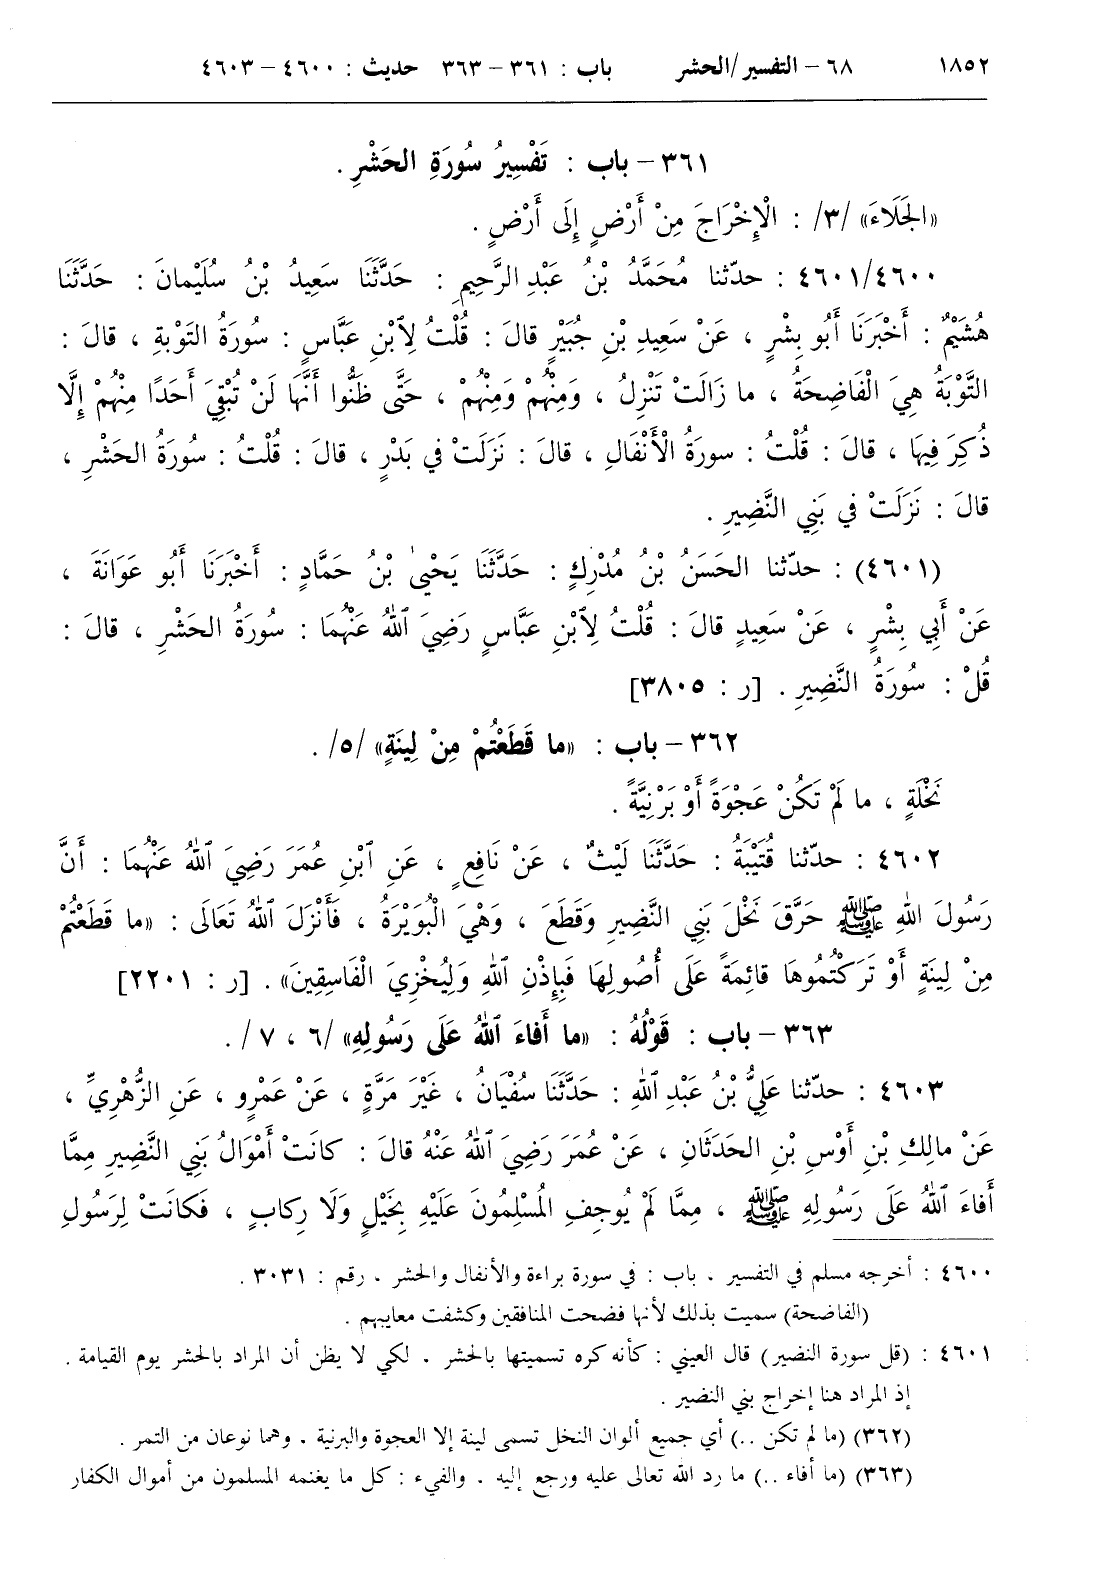 ١٨٥٢ ٦٨ - التفسير/الحشر باب : ٣٦١ - ٣٦٣ حديث : ٤٦٠٠ - ٤٦٠٣
٣٦١ - باب : تَفْسِيرُ سُورَةِ الحَشْرِ .
«الجَلَاءَ» /٣/ : الْإِخْرَاجَ مِنْ أَرْضٍ إِلَى أَرْضٍ .
٤٦٠١/٤٦٠٠ : حدّثنا مُحَمَّدُ بْنُ عَبْدِ الرَّحِيمِ : حَدَّثَنَا سَعِيدُ بْنُ سُلَيْمانَ : حَدَّثَنَا
هُشَيْمٌ : أَخْبَرَنَا أَبُو بِشْرٍ ، عَنْ سَعِيدِ بْنِ جُبَيْرٍ قالَ : قُلْتُ لِٱبْنِ عَبَّاسٍ : سُورَةُ التَّوْبَةِ ، قالَ :
التَّوْبَةُ هِيَ الْفَاضِحَةُ ، ما زَالَتْ تَنْزِلُ ، وَمِنْهُمْ وَمِنْهُمْ ، حَتَّى ظَنُّوا أَنَّهَا لَنْ تُبْقِيَ أَحَدًا مِنْهُمْ إِلَّا
ذُكِرَ فِيهَا ، قالَ : قُلْتُ : سورَةُ الْأَنْفَالِ ، قالَ : نَزَلَتْ في بَدْرٍ ، قالَ : قُلْتُ : سورَةُ الحَشْرِ ،
قالَ : نَزَلَتْ في بَنِي النَّضِيرِ .
(٤٦٠١) : حدّثنا الحَسَنُ بْنُ مُدْرِكٍ : حَدَّثَنَا يَحْيىٰ بْنُ حَمَّادٍ : أَخْبَرَنَا أَبُو عَوَانَةَ ،
عَنْ أَبِي بِشْرٍ ، عَنْ سَعِيدٍ قالَ : قُلْتُ لِٱبْنِ عَبَّاسٍ رَضِيَ ٱللهُ عَنْهُمَا : سُورَةُ الحَشْرِ ، قالَ :
قُلْ : سُورَةُ النَّضِيرِ . [ر : ٣٨٠٥]
٣٦٢ - باب : «ما قَطَعْتُمْ مِنْ لِينَةٍ» /٥/ .
نَخْلَةٍ ، ما لَمْ تَكُنْ عَجْوَةً أَوْ بَرْنِيَّةً .
٤٦٠٢ : حدّثنا قُتَيْبَةُ : حَدَّثَنَا لَيْثٌ ، عَنْ نَافِعٍ ، عَنِ ٱبْنِ عُمَرَ رَضِيَ ٱللهُ عَنْهُمَا : أَنَّ
رَسُولَ اللهِ ﷺ حَرَّقَ نَخْلَ بَنِي النَّضِيرِ وَقَطَعَ ، وَهْيَ الْبُوَيْرَةُ ، فَأَنْزَلَ ٱللهُ تَعَالَى : «ما قَطَعْتُمْ
مِنْ لِينَةٍ أَوْ تَرَكْتُمُوهَا قائِمَةً عَلَى أُصُولِهَا فَبِإِذْنِ ٱللهِ وَلِيُخْزِيَ الْفَاسِقِينَ» . [ر : ٢٢٠١]
٣٦٣ - باب : قَوْلُهُ : «ما أَفاءَ ٱللهُ عَلَى رَسُولِهِ» /٦ ، ٧/ .
٤٦٠٣ : حدّثنا عَلِيُّ بْنُ عَبْدِ ٱللهِ : حَدَّثَنَا سُفْيَانُ ، غَيْرَ مَرَّةٍ ، عَنْ عَمْرٍو ، عَنِ الزُّهْرِيِّ ،
عَنْ مالِكِ بْنِ أَوْسِ بْنِ الحَدَثَانِ ، عَنْ عُمَرَ رَضِيَ ٱللهُ عَنْهُ قالَ : كانَتْ أَمْوَالُ بَنِي النَّضِيرِ مِمَّا
أَفاءَ ٱللهُ عَلَى رَسُولِهِ ﷺ ، مِمَّا لَمْ يُوجِفِ الْمُسْلِمُونَ عَلَيْهِ بِخَيْلٍ وَلَا رِكابٍ ، فَكانَتْ لِرَسُولِ
٤٦٠٠ : أخرجه مسلم في التفسير . باب : في سورة براءة والأنفال والحشر . رقم : ٣٠٣١ .
(الفاضحة) سميت بذلك لأنها فضحت المنافقين وكشفت معايبهم .
٤٦٠١ : (قل سورة النضير) قال العيني : كأنه كره تسميتها بالحشر . لكي لا يظن أن المراد بالحشر يوم القيامة .
إذ المراد هنا إخراج بني النضير .
(٣٦٢) (ما لم تكن ..) أي جميع ألوان النخل تسمى لينة إلا العجوة والبرنية . وهما نوعان من التمر .
(٣٦٣) (ما أفاء ..) ما رد الله تعالى عليه ورجع إليه . والفيء : كل ما يغنمه المسلمون من أموال الكفار